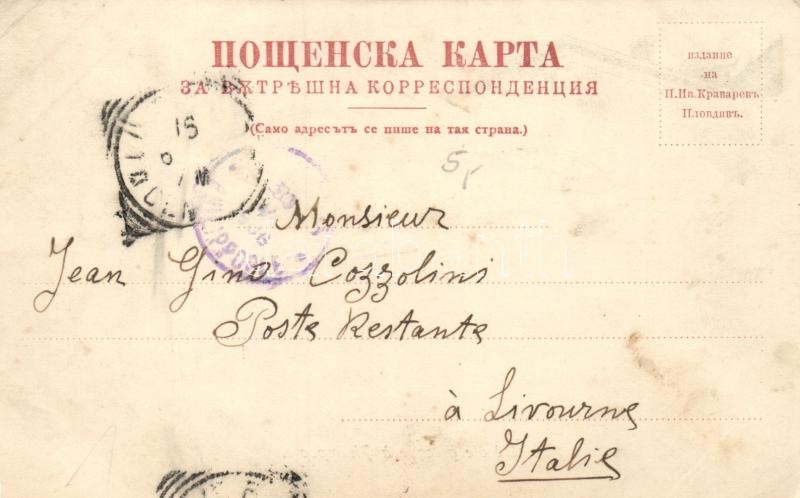 ПОЩЕНСКА КАРТА
ЗА ВѪТРѢШНА КОРРЕСПОНДЕНЦИЯ
(Само адресътъ се пише на тая страна.)
издание
на
П.Ив.Краваревъ
Пловдивъ.
15
Monsieur
Jean Gino Cozzolini
Poste Restante
à Livourne
Italie